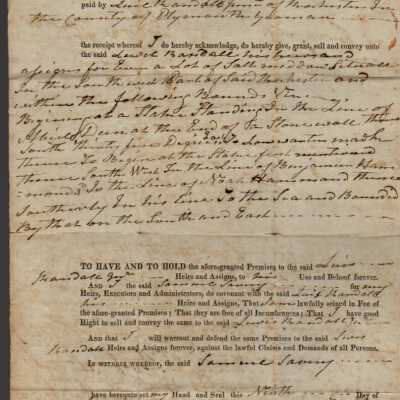 paid by Luis Randall Junr of Rochester In
the County of Plymouth yeoman
the receipt whereof I do hereby acknowledge, do hereby give, grant, sell and convey unto
the said Lewis Randall his heirs and
assigns for Ever a lot of Salt meddow Situate
In the South west Part of said Rochester and
within the following Bounds Viz
Begining at a Stake Standing In the Line of
at the End of Stone wall thence
South thirty five Degrees to
thence To Begin at the Stake first mentioned
thence South West In the Line of Benjamin Ham-
mond To the Line of Noah Hammond thence
Southerly In his line To the Sea and Bounded
By that on the South and East
TO HAVE AND TO HOLD the afore-granted Premises to the said Luis
Randall Jnr Heirs and Assigns, to his Use and Behoof forever.
And I the said Samuel Savery for my
Heirs, Executors and Administrators, do covenant with the said Luis Randall
his Heirs and Assigns, That I am lawfully seized in Fee of
the afore-granted Premises; That they are free of all Incumbrances; That I have good
Right to sell and convey the same to the said Lewis Randall Jr
And that I will warrant and defend the same Premises to the said Lewis
Randall Heirs and Assigns, against the lawful Claims and Demands of all Persons.
IN WITNESS WHEREOF, the said Samuel Savery
have hereunto set my Hand and Seal this Ninth Day of